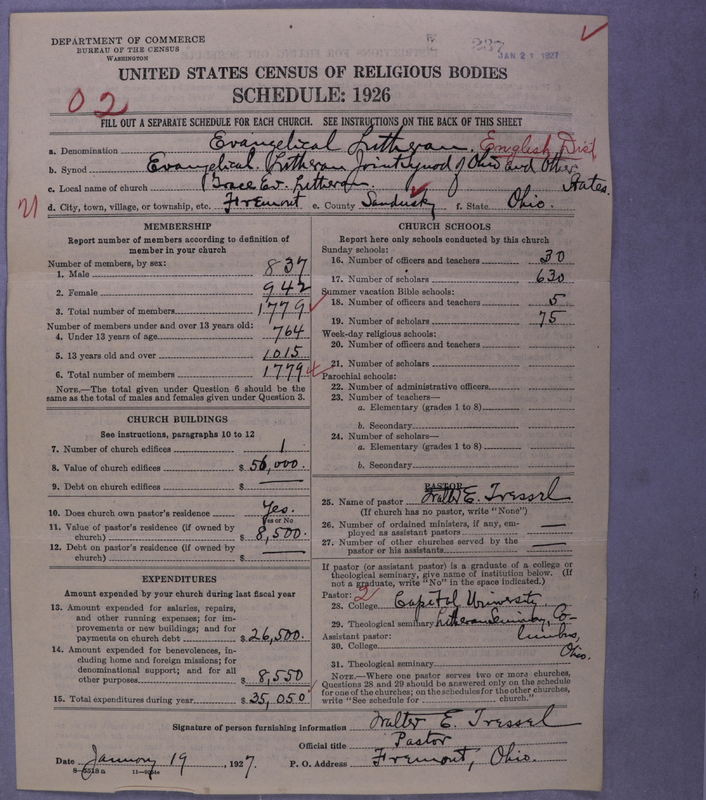 DEPARTMENT OF COMMERCE
BUREAU OF THE CENSUS
WASHINGTON
237
JAN 21 1927
UNITED STATES CENSUS OF RELIGIOUS BODIES
SCHEDULE: 1926
02
FILL OUT A SEPARATE SCHEDULE FOR EACH CHURCH. SEE INSTRUCTIONS ON THE BACK OF THIS SHEET
a. Denomination Evangelical Lutheran. English Dist
b. Synod Evangelical Lutheran Joint Synod of Ohio and Other States.
c. Local name of church Grace Ev. Lutheran.
d. City, town, village, or township, etc. Fremont e. County Sandusky f. State Ohio.
MEMBERSHIP
Report number of members according to definition of
member in your church
Number of members, by sex:
1. Male 837
2. Female 942
3. Total number of members 1779
Number of members under and over 13 years old:
4. Under 13 years of age 764
5. 13 years old and over 1015
6. Total number of members 1779
NOTE.—The total given under Question 6 should be the
same as the total of males and females given under Question 3.
CHURCH BUILDINGS
See instructions, paragraphs 10 to 12
7. Number of church edifices 1
8. Value of church edifices $56,000.
9. Debt on church edifices $ —
10. Does church own pastor's residence Yes.
Yes or No
11. Value of pastor's residence (if owned by
church) $8,500.
12. Debt on pastor's residence (if owned by
church) $ —
EXPENDITURES
Amount expended by your church during last fiscal year
13. Amount expended for salaries, repairs,
and other running expenses; for im-
provements or new buildings; and for
payments on church debt $26,500.
14. Amount expended for benevolences, in-
cluding home and foreign missions; for
denominational support; and for all
other purposes $8,550
15. Total expenditures during year $35,050
CHURCH SCHOOLS
Report here only schools conducted by this church
Sunday schools:
16. Number of officers and teachers 30
17. Number of scholars 630
Summer vacation Bible schools:
18. Number of officers and teachers 5
19. Number of scholars 75
Week-day religious schools:
20. Number of officers and teachers
21. Number of scholars
Parochial schools:
22. Number of administrative officers
23. Number of teachers—
a. Elementary (grades 1 to 8)
b. Secondary
24. Number of scholars—
a. Elementary (grades 1 to 8)
b. Secondary
PASTOR
25. Name of pastor Walter E. Tressel
(If church has no pastor, write "None")
26. Number of ordained ministers, if any, em-
ployed as assistant pastors —
27. Number of other churches served by the
pastor or his assistants —
If pastor (or assistant pastor) is a graduate of a college or
theological seminary, give name of institution below. (If
not a graduate, write "No" in the space indicated.)
Pastor: 2
28. College Capital University
29. Theological seminary Lutheran Seminary, Co-
lumbus,
Ohio.
Assistant pastor:
30. College
31. Theological seminary
NOTE.—Where one pastor serves two or more churches,
Questions 28 and 29 should be answered only on the schedule
for one of the churches; on the schedules for the other churches,
write "See schedule for church."
Signature of person furnishing information Walter E. Tressel
Official title Pastor
Date January 19, 1927. P. O. Address Fremont, Ohio.